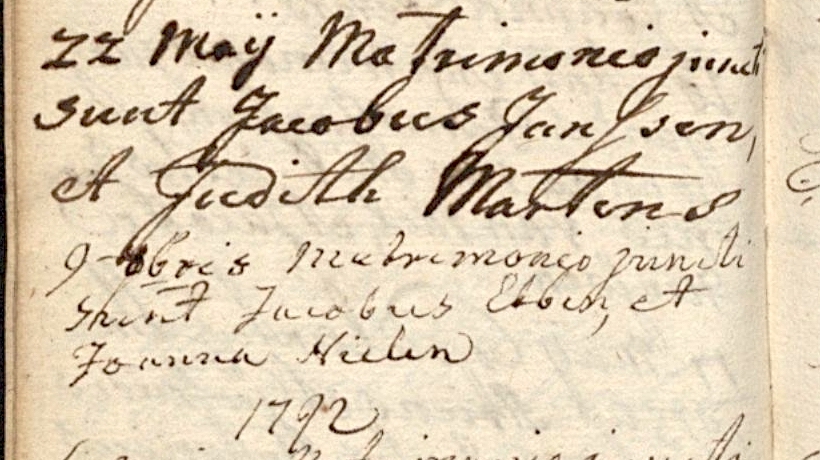 22 Maÿ Matrimonio juncti
sunt Jacobus Janssen,
et Judith Martens
9-bris Matrimonio juncti
sunt Jacobus Ebben, et
Joanna Hielen
1792
Matrimonio juncti